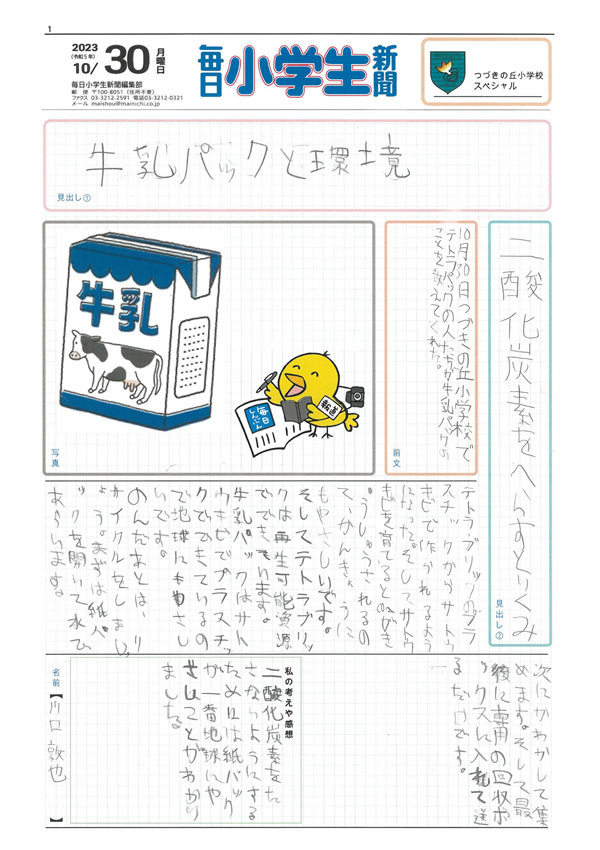 1
2023
(令和5年)
10/30
月曜日
毎日小学生編集部
毎日
小学生
新聞
つづきの丘小学校
スペシャル
牛乳パックと環境
見出し①
二酸化炭素をへらすとりくみ
見出し②
10月30日つづきの丘小学校で
テトラパックの人たちが牛乳パックの
ことを教えてくれた。
前文
牛乳
毎日
しんぶん
報道
写真
テトラ・ブリックのプラ
スチックからサトウ
キビで作られるよう
になった。そしてサトウ
きびを育てるとのがき
ゅうしゅうされるの
で、かんきょうに
もやさしいです。
そしてテトラブリッ
クは再生可能資源
でできています。
牛乳パックはサト
ウキビでプラスチッ
クでできているの
で地球にもやさし
いです。
のんだあとは、リ
サイクルをしまし
ょう。まずは紙パ
ックを開いて水で
あらいます。
次にかわかして集
めます。そして最
後に専用の回収ボ
ックスに入れて送
るだけです。
私の考えや感想
二酸化炭素をだ
さないようにする
ためには紙パック
が一番地球にや
さしいことがわかり
ました。
名前【川口 敦也】